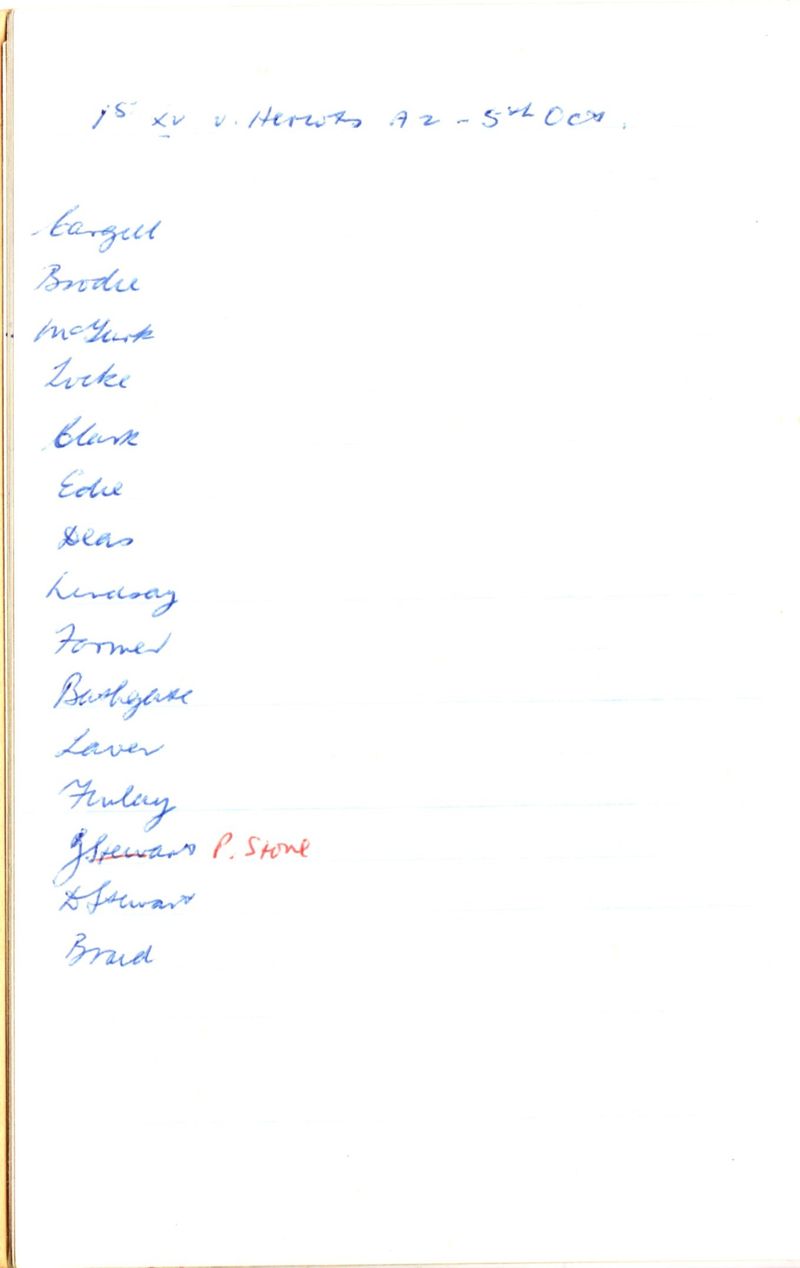 1st XV v. Heriots A2 - 5th Oct.
Cargill
Brodie
McGurk
Locke
Clark
Edie
Deas
Lindsay
Former
Bathgate
Laver
Finlay
G Stewart P. Stone
D Stewart
Braid